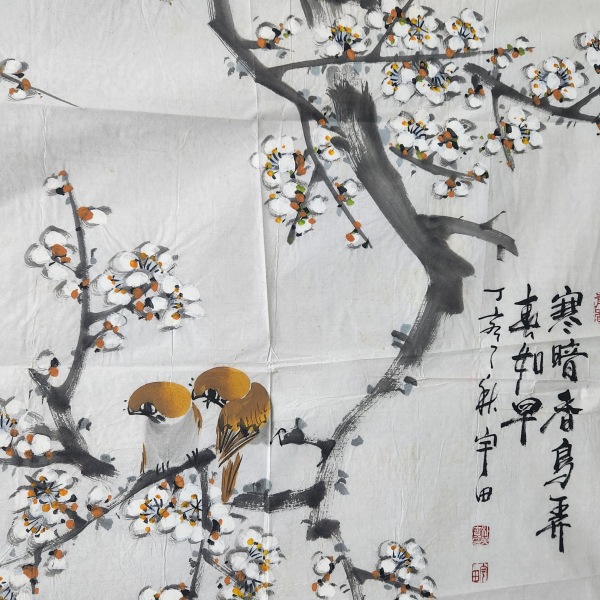 寒暗香鸟弄
春如早
丁亥之秋宇田